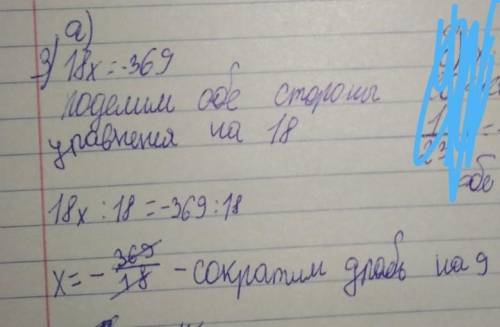 а)
3) 18x = -369
поделим обе стороны
уравнения на 18
18x : 18 = -369 : 18
x = - 369/18 - сократим дробь на 9
обе